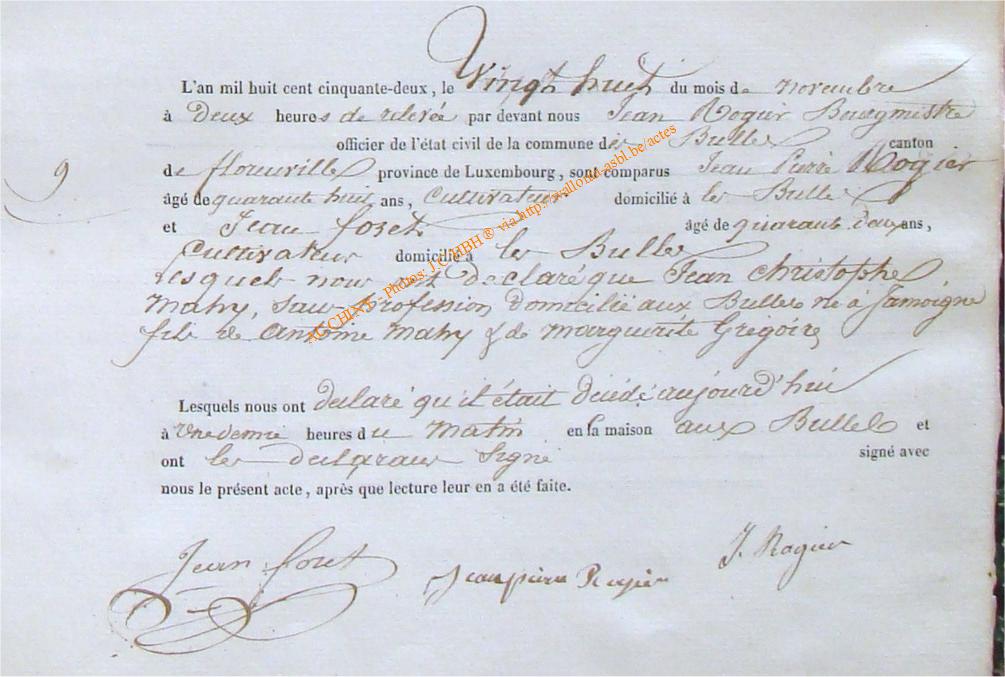 L'an mil huit cent cinquante-deux, le Vingt huit du mois de novembre
à Deux heures de relevée par devant nous Jean Rogier Bourgmestre
officier de l'état civil de la commune des Bulles canton
9
de florenville province de Luxembourg, sont comparus Jean Pierre Rogier
âgé de quarante huit ans, Cultivateur domicilié à les Bulles
et Jean foret âgé de quarante deux ans,
Cultivateur domicilié à les Bulles
Lesquels nous ont declaré que Jean Christophe
Mahy, sans profession domicilié aux Bulles né à Jamoigne
fils de Antoine Mahy & de Marguerite Grégoire
Lesquels nous ont declaré qu'il était décédé aujourd'hui
à une demie heures du matin en la maison aux Bulles et
ont les declarans signé signé avec
nous le présent acte, après que lecture leur en a été faite.
Jean foret Jean pierre Rogier J. Rogier
ACCHINY - Photos: J.C.HBH ® via http://wallonia-asbl.be/actes